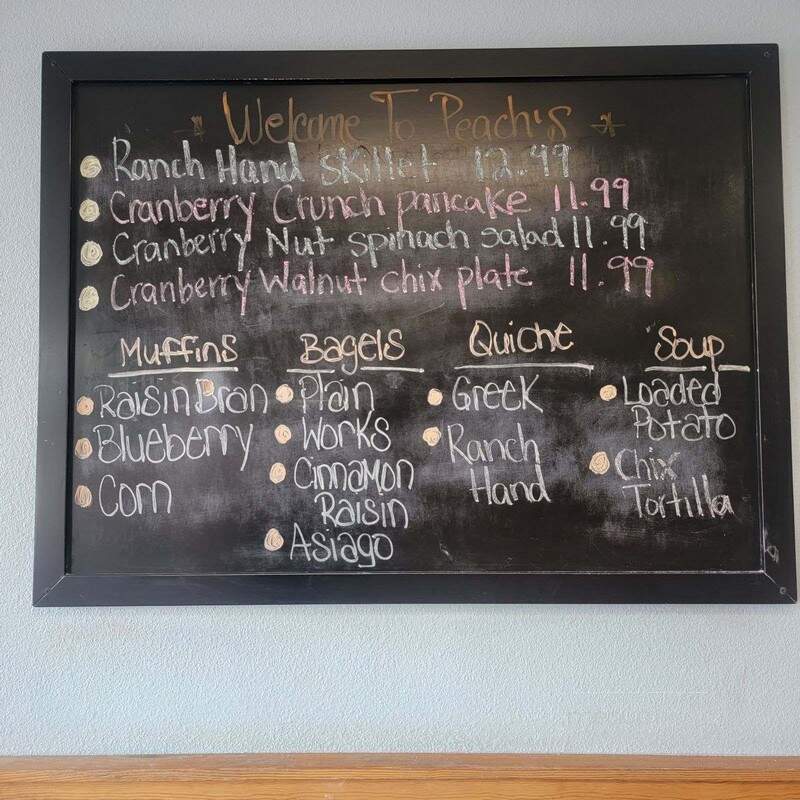 Welcome To Peach's
Ranch Hand skillet 12.99
Cranberry Crunch pancake 11.99
Cranberry Nut spinach salad 11.99
Cranberry Walnut chix plate 11.99
Muffins
Raisin Bran
Blueberry
Corn
Bagels
Plain
Works
Cinnamon
Raisin
Asiago
Quiche
Greek
Ranch
Hand
Soup
Loaded
Potato
Chix
Tortilla